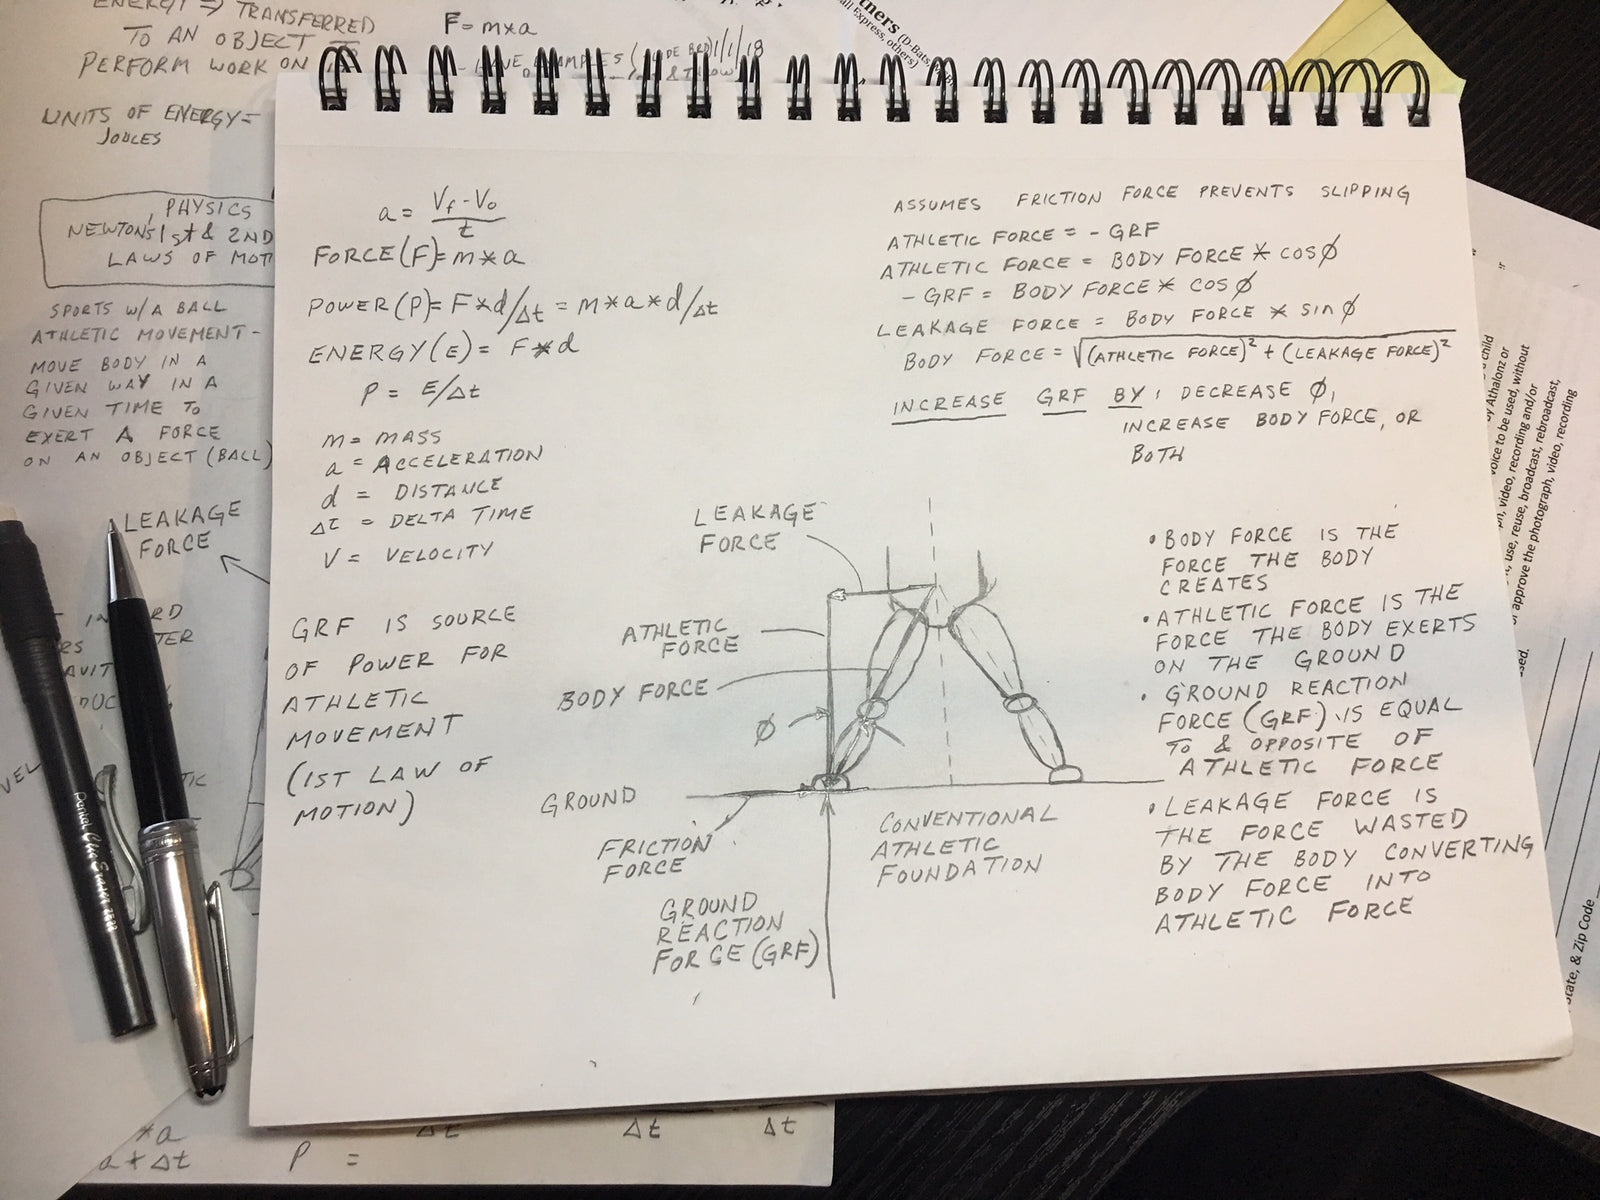 ENERGY => TRANSFERRED
TO AN OBJECT TO
PERFORM WORK ON
UNITS OF ENERGY =
JOULES
PHYSICS
NEWTONS 1st & 2ND
LAWS OF MOTI
SPORTS W/A BALL
ATHLETIC MOVEMENT -
MOVE BODY IN A
GIVEN WAY IN A
GIVEN TIME TO
EXERT A FORCE
ON AN OBJECT (BALL)
LEAKAGE
FORCE
F = m*a
1/1/18
tners (D-Bats,
all Express, others)
a = (Vf - Vo)/t
FORCE (F) = m * a
POWER (P) = F * d/Δt = m * a * d/Δt
ENERGY (E) = F * d
P = E/Δt
m = MASS
a = ACCELERATION
d = DISTANCE
Δt = DELTA TIME
V = VELOCITY
GRF IS SOURCE
OF POWER FOR
ATHLETIC
MOVEMENT
(1ST LAW OF
MOTION)
ASSUMES FRICTION FORCE PREVENTS SLIPPING
ATHLETIC FORCE = - GRF
ATHLETIC FORCE = BODY FORCE * cos∅
- GRF = BODY FORCE * cos∅
LEAKAGE FORCE = BODY FORCE * sin∅
BODY FORCE = √(ATHLETIC FORCE)² + (LEAKAGE FORCE)²
INCREASE GRF BY: DECREASE ∅,
INCREASE BODY FORCE, OR
BOTH
LEAKAGE
FORCE
ATHLETIC
FORCE
BODY FORCE
∅
GROUND
FRICTION
FORCE
GROUND
REACTION
FORCE (GRF)
CONVENTIONAL
ATHLETIC
FOUNDATION
• BODY FORCE IS THE
FORCE THE BODY
CREATES
• ATHLETIC FORCE IS THE
FORCE THE BODY EXERTS
ON THE GROUND
• GROUND REACTION
FORCE (GRF) IS EQUAL
TO & OPPOSITE OF
ATHLETIC FORCE
• LEAKAGE FORCE IS
THE FORCE WASTED
BY THE BODY CONVERTING
BODY FORCE INTO
ATHLETIC FORCE
child
by Athalonz or
voice to be used, without
video, recording and/or
use, reuse, broadcast, rebroadcast,
approve the photograph, video, recording
sed.
State, & Zip Code
Pentel Clic Eraser
VEL
* a
a * Δt
P =
Δt
Δt
Δt